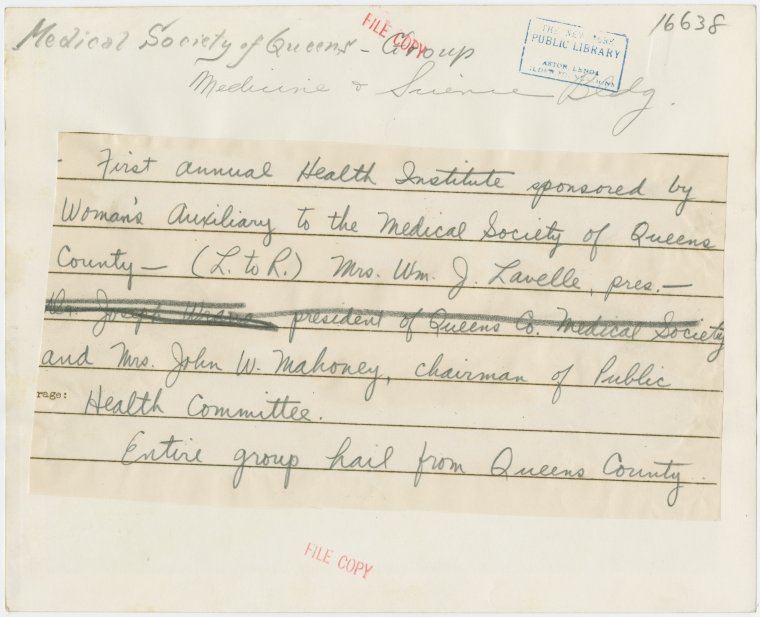 16638
FILE COPY
Medical Society of Queens - Group
THE NEW YORK
PUBLIC LIBRARY
ASTOR, LENOX
Medicine & Science Bldg.
- First annual Health Institute sponsored by
Woman's Auxiliary to the Medical Society of Queens
County - (L. to R.) Mrs. Wm. J. Lavelle, pres. -
Dr. Joseph president of Queens Co. Medical Society
and Mrs. John W. Mahoney, chairman of Public
rage: Health Committee.
Entire group hail from Queens County.
FILE COPY